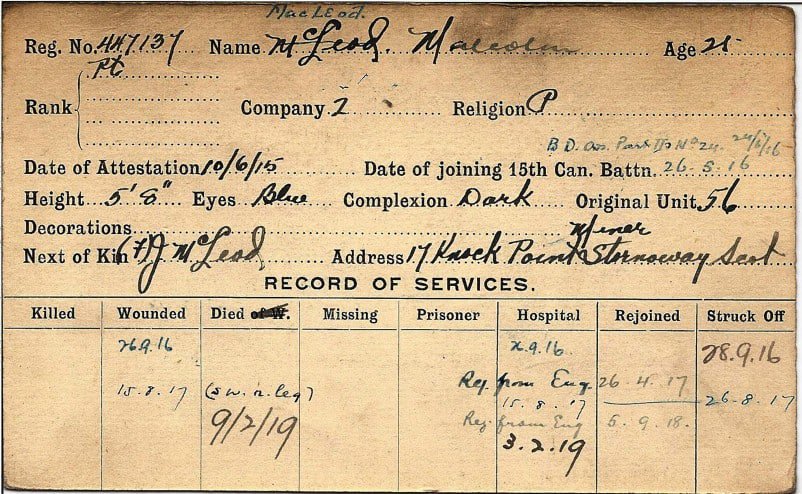 MacLeod.
Reg. No. 447137 Name McLeod. Malcolm Age 25
Pt
Rank
Company 2 Religion P
B.D. Part II No 24. 24/6/16
Date of Attestation 10/6/15 Date of joining 15th Can. Battn. 26.5.16
Height 5' 8" Eyes Blue Complexion Dark Original Unit 56
Decorations Miner
Next of Kin (F) J McLeod Address 17 Knock Point Stornoway Scot
RECORD OF SERVICES.
Killed Wounded Died of W. Missing Prisoner Hospital Rejoined Struck Off
26.9.16 26.9.16 28.9.16
15.8.17 (S W. r. leg) Rej. from Eng 26.4.17
15.8.17 26.8.17
9/2/19 Rej. from Eng 5.9.18.
3.2.19